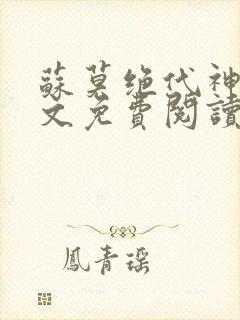 蘇莫绝代神
文免費閱讀
鳳青瑶